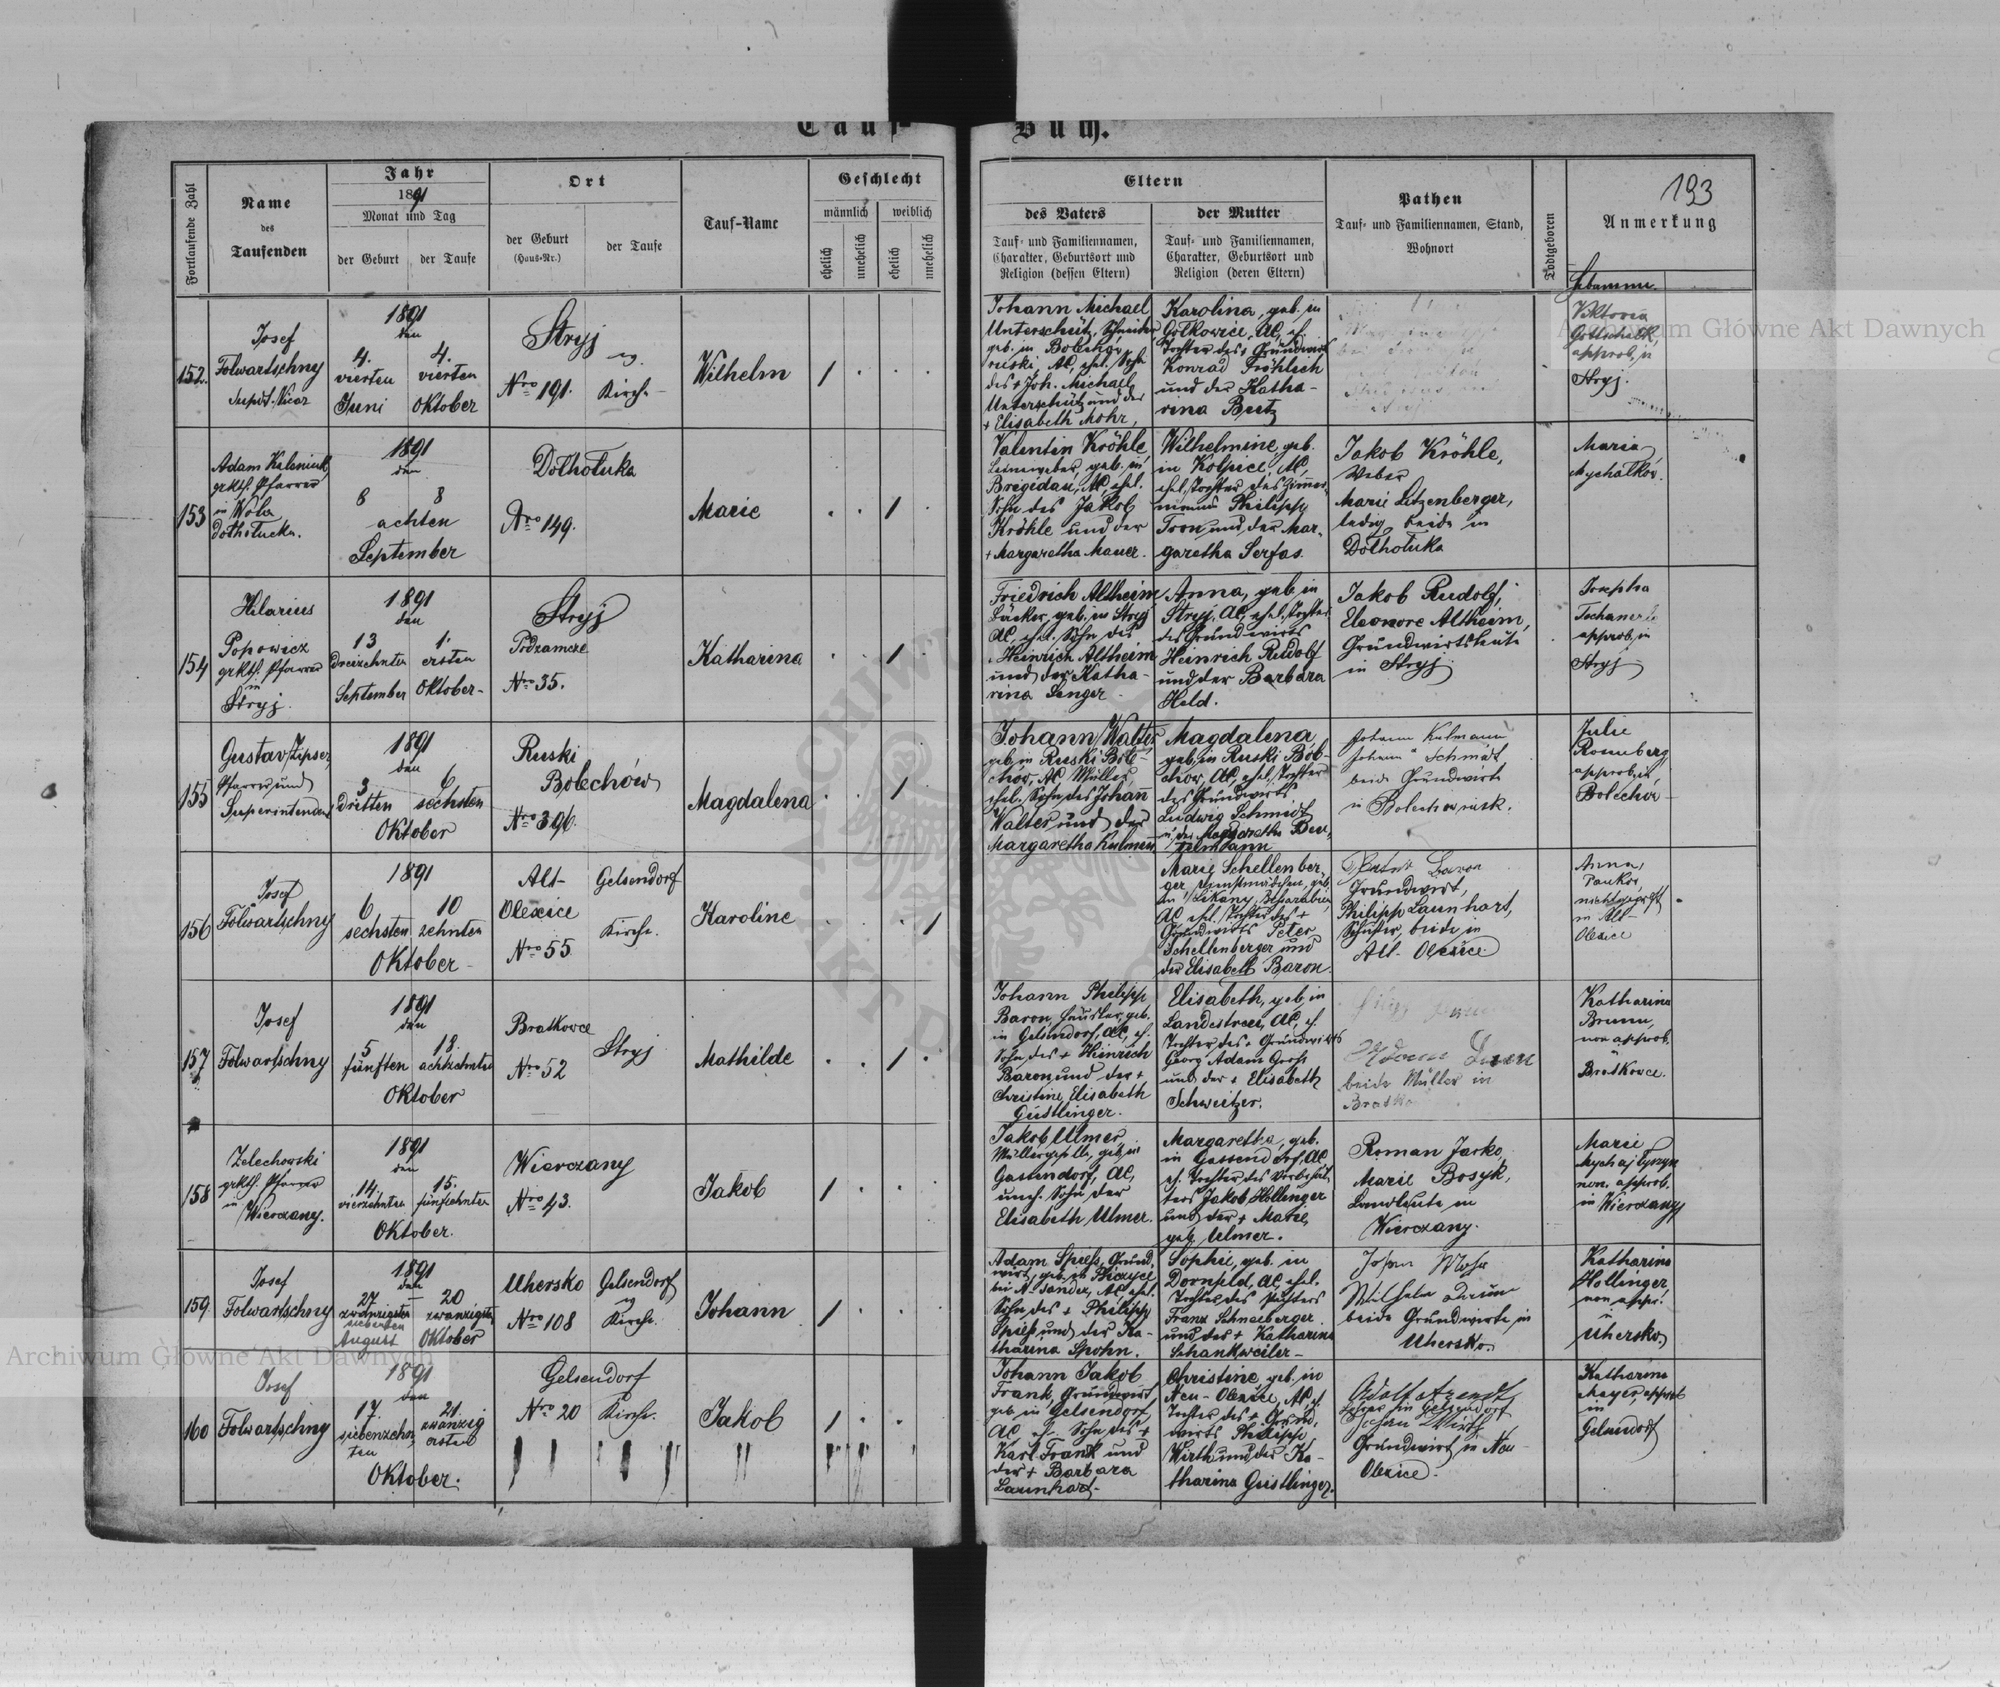 Tauf-Buch.
193
Fortlaufende Zahl
Name
des
Taufenden
Jahr
1891
Monat und Tag
der Geburt
der Taufe
Ort
der Geburt
(Haus-Nr.)
der Taufe
Tauf-Name
Geschlecht
männlich
weiblich
ehelich
unehelich
ehelich
unehelich
Eltern
des Vaters
Tauf- und Familiennamen,
Charakter, Geburtsort und
Religion (dessen Eltern)
der Mutter
Tauf- und Familiennamen,
Charakter, Geburtsort und
Religion (deren Eltern)
Pathen
Tauf- und Familiennamen, Stand,
Wohnort
Todtgeboren
Anmerkung
Hebamme.
152.
Josef
Folwartschny
Supdt. Vicar
1891
den
4.
vierten
Juni
4.
vierten
Oktober
Stryj
Nro 191.
ev.
Kirche
Wilhelm
1
Johann Michael
Unterschütz, Schneider
geb. in Bolechów
ruski, AC, ehel. Sohn
des + Joh. Michael
Unterschütz und der
+ Elisabeth Mohr,
Karolina, geb. in
Gołkowice, AC, eh.
Tochter des + Grundwirts
Konrad Fröhlich
und der Katha-
rina Butz
Viktoria
Gottschalk,
approb. in
Stryj.
153
Adam Kaleniuk,
grkth. Pfarrer
in Wola
Dołhołucka.
1891
den
8
8
achten
September
Dołhołuka
Nro 149.
Marie
1
Valentin Kröhle,
Leineweber, geb. in
Brigidau, AC, ehel.
Sohn des Jakob
Kröhle und der
+ Margaretha Mauer.
Wilhelmine, geb.
in Kolpice, AC,
ehel. Tochter des Zimmer-
manns Philipp
Tron und der Mar-
garetha Serfas.
Jakob Kröhle,
Weber
Marie Litzenberger,
ledig beide in
Dołhołuka
Maria
Mychalków.
154
Hilarius
Popowicz
grkth. Pfarrer
in
Stryj.
1891
den
13
dreizehnten
September
1.
ersten
Oktober
Stryj
Podzamcze
Nro 35.
Katharina
1
Friedrich Altheim
Bäcker, geb. in Stryj
AC, ehel. Sohn des
Heinrich Altheim
und der Katha-
rina Senger
Anna, geb. in
Stryj, AC, ehel. Tochter
des Grundwirts
Heinrich Rudolf
und der Barbara
Held.
Jakob Rudolf,
Eleonore Altheim,
Grundwirtsleute
in Stryj.
Josepha
approb. in
Stryj
155
Gustav Zipser,
Pfarrer und
Superintendent
1891
den
3
dritten
6
sechsten
Oktober
Ruski
Bolechów
Nro 396.
Magdalena
1
Johann Walter
geb. in Ruski Bole-
chow, AC, Müller,
ehel. Sohn des Johann
Walter und der
Margaretha Kulmann
Magdalena
geb. in Ruski Bol-
echow, AC, ehel. Tochter
des Grundwirts
Ludwig Schmidt
Johann Kulmann
Johann Schmidt
beide Grundwirte
in Bolechow rusk.
Julie
Rosenberg
approb. in
Bolechow
156
Josef
Folwartschny
1891
6
sechsten
10
zehnten
Oktober
Alt-
Olexice
Nro 55
Gelsendorf
Kirche.
Karoline
1
Marie Schellenber-
ger, Dienstmädchen, geb.
AC ehel. Tochter des +
Grundwirts Peter
Schellenberger und
der Elisabeth Baron.
Peter Baron
Grundwirt,
Philipp Launhart,
Schuster, beide in
Alt-Olexice
Anna
nicht geprüft
in Alt-
Olexice
157
Josef
Folwartschny
1891
den
5
fünften
18.
achtzehnten
Oktober
Bratkowce
Nro 52
Stryj
Mathilde
1
Johann Philipp
Baron, Häusler, geb.
in Gelsendorf, AC, eh.
Sohn des + Heinrich
Baron und der +
Christine Elisabeth
Geistlinger.
Elisabeth, geb. in
Landestreu, AC, eh.
Tochter des + Grundwirts
Georg Adam Gross
und der + Elisabeth
Schweitzer.
beide Müller in
Katharina
Brunn,
non approb.
Bratkowce.
158
Zelechowski
grkth. Pfarrer
in
Wierczany.
1891
den
14.
vierzehnten
15.
fünfzehnten
Oktober.
Wierczany
Nro 43.
Jakob
1
Jakob Ulmer,
Müllergeselle, geb. in
Gassendorf, AC,
uneh. Sohn der
Elisabeth Ulmer.
Margaretha, geb.
in Gassendorf, AC,
eh. Tochter des
Jakob Hollinger
und der + Marie,
geb. Ulmer.
Roman Jarko,
Marie Bosyk,
Landleute in
Wierczany.
Marie
non. approb.
in Wierczany
159
Josef
Folwartschny
1891
den
27
zwanzigsten
siebenten
August
20
zwanzigsten
Oktober
Uhersko
Nro 108
Gelsendorf
ev.
Kirche.
Johann
1
Adam Spiess, Grund-
wirt, geb. in
bei N. Sandez, AC, ehel.
Sohn des + Philipp
Spiess und der Ka-
tharina Spohn.
Sophie, geb. in
Dornfeld, AC, ehel.
Tochter des Pächters
Franz Schneeberger
und der + Katharina
Schankweiler
Johan Mohr
Wilhelm
beide Grundwirte, in
Uhersko.
Katharina
Hollinger
non appr.
in
Uhersko
160
Josef
Folwartschny
1891
den
17.
siebenzehn-
ten
21.
zwanzig
ersten
Oktober.
Gelsendorf
Nro 20
Kirche.
Jakob
1
Johann Jakob
Frank, Grundwirt,
geb. in Gelsendorf,
AC, eh. Sohn des +
Karl Frank und
der + Barbara
Launhart.
Christine geb. in
Neu-Olexice, AC, eh.
Tochter des + Grund-
wirts Philipp
Wirth und der Ka-
tharina Geistlinger.
Adolf Arendt,
Lehrer in Gelsendorf
Johan Wirth
Grundwirt in Neu
Olexice.
Katharina
Mayer, approb.
in
Gelsendorf
Archiwum Główne Akt Dawnych
Archiwum Główne Akt Dawnych